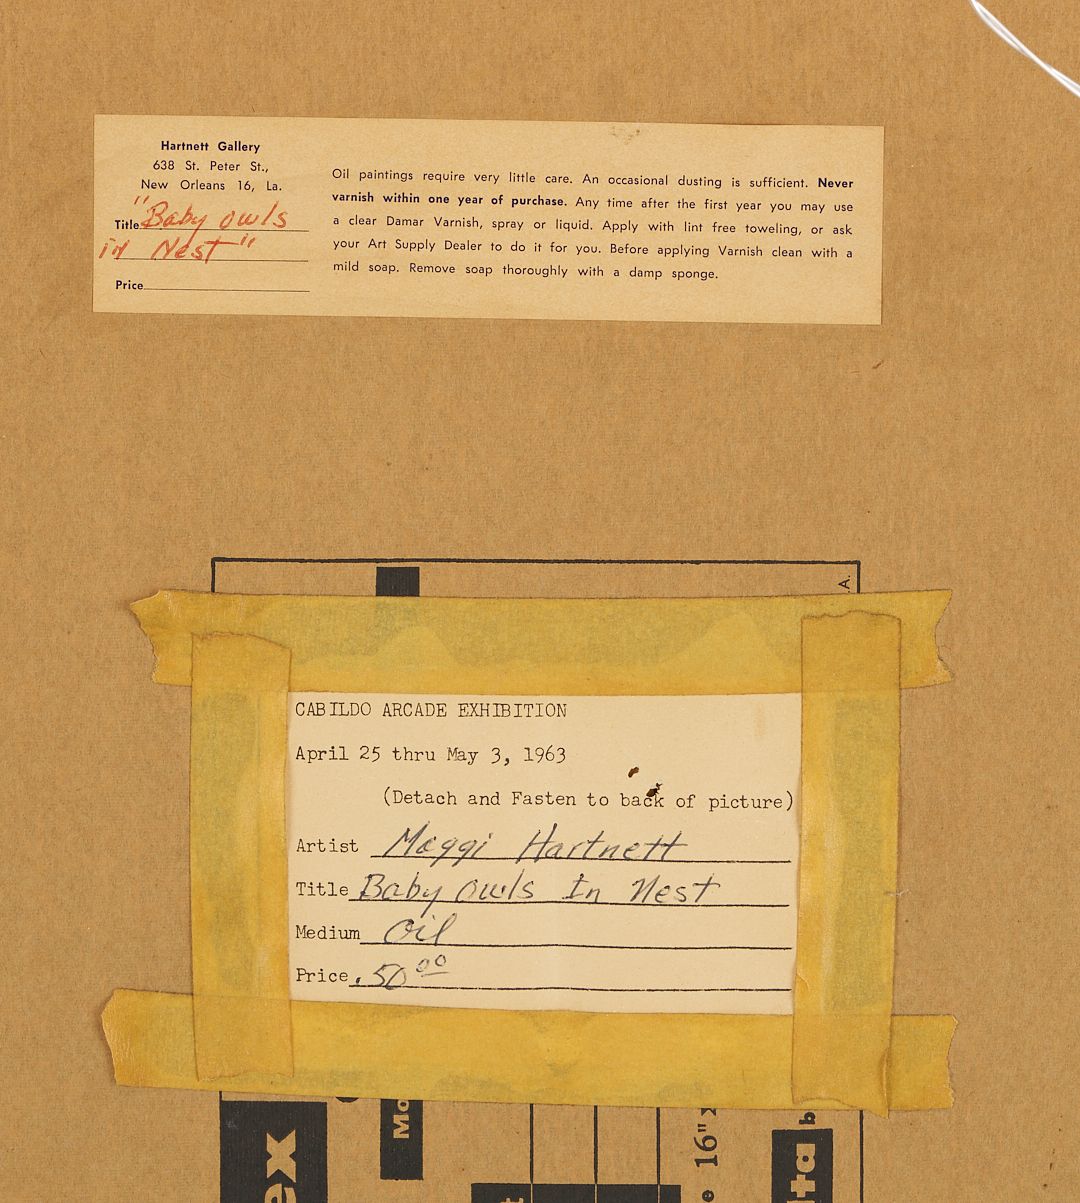 Hartnett Gallery
638 St. Peter St.,
New Orleans 16, La.
Title "Baby owls
in Nest"
Price
Oil paintings require very little care. An occasional dusting is sufficient. Never
varnish within one year of purchase. Any time after the first year you may use
a clear Damar Varnish, spray or liquid. Apply with lint free toweling, or ask
your Art Supply Dealer to do it for you. Before applying Varnish clean with a
mild soap. Remove soap thoroughly with a damp sponge.
A.
CABILDO ARCADE EXHIBITION
April 25 thru May 3, 1963
(Detach and Fasten to back of picture)
Artist Maggi Hartnett
Title Baby owls In Nest
Medium Oil
Price. 50 00
ex
Mo
16" x
lta
b